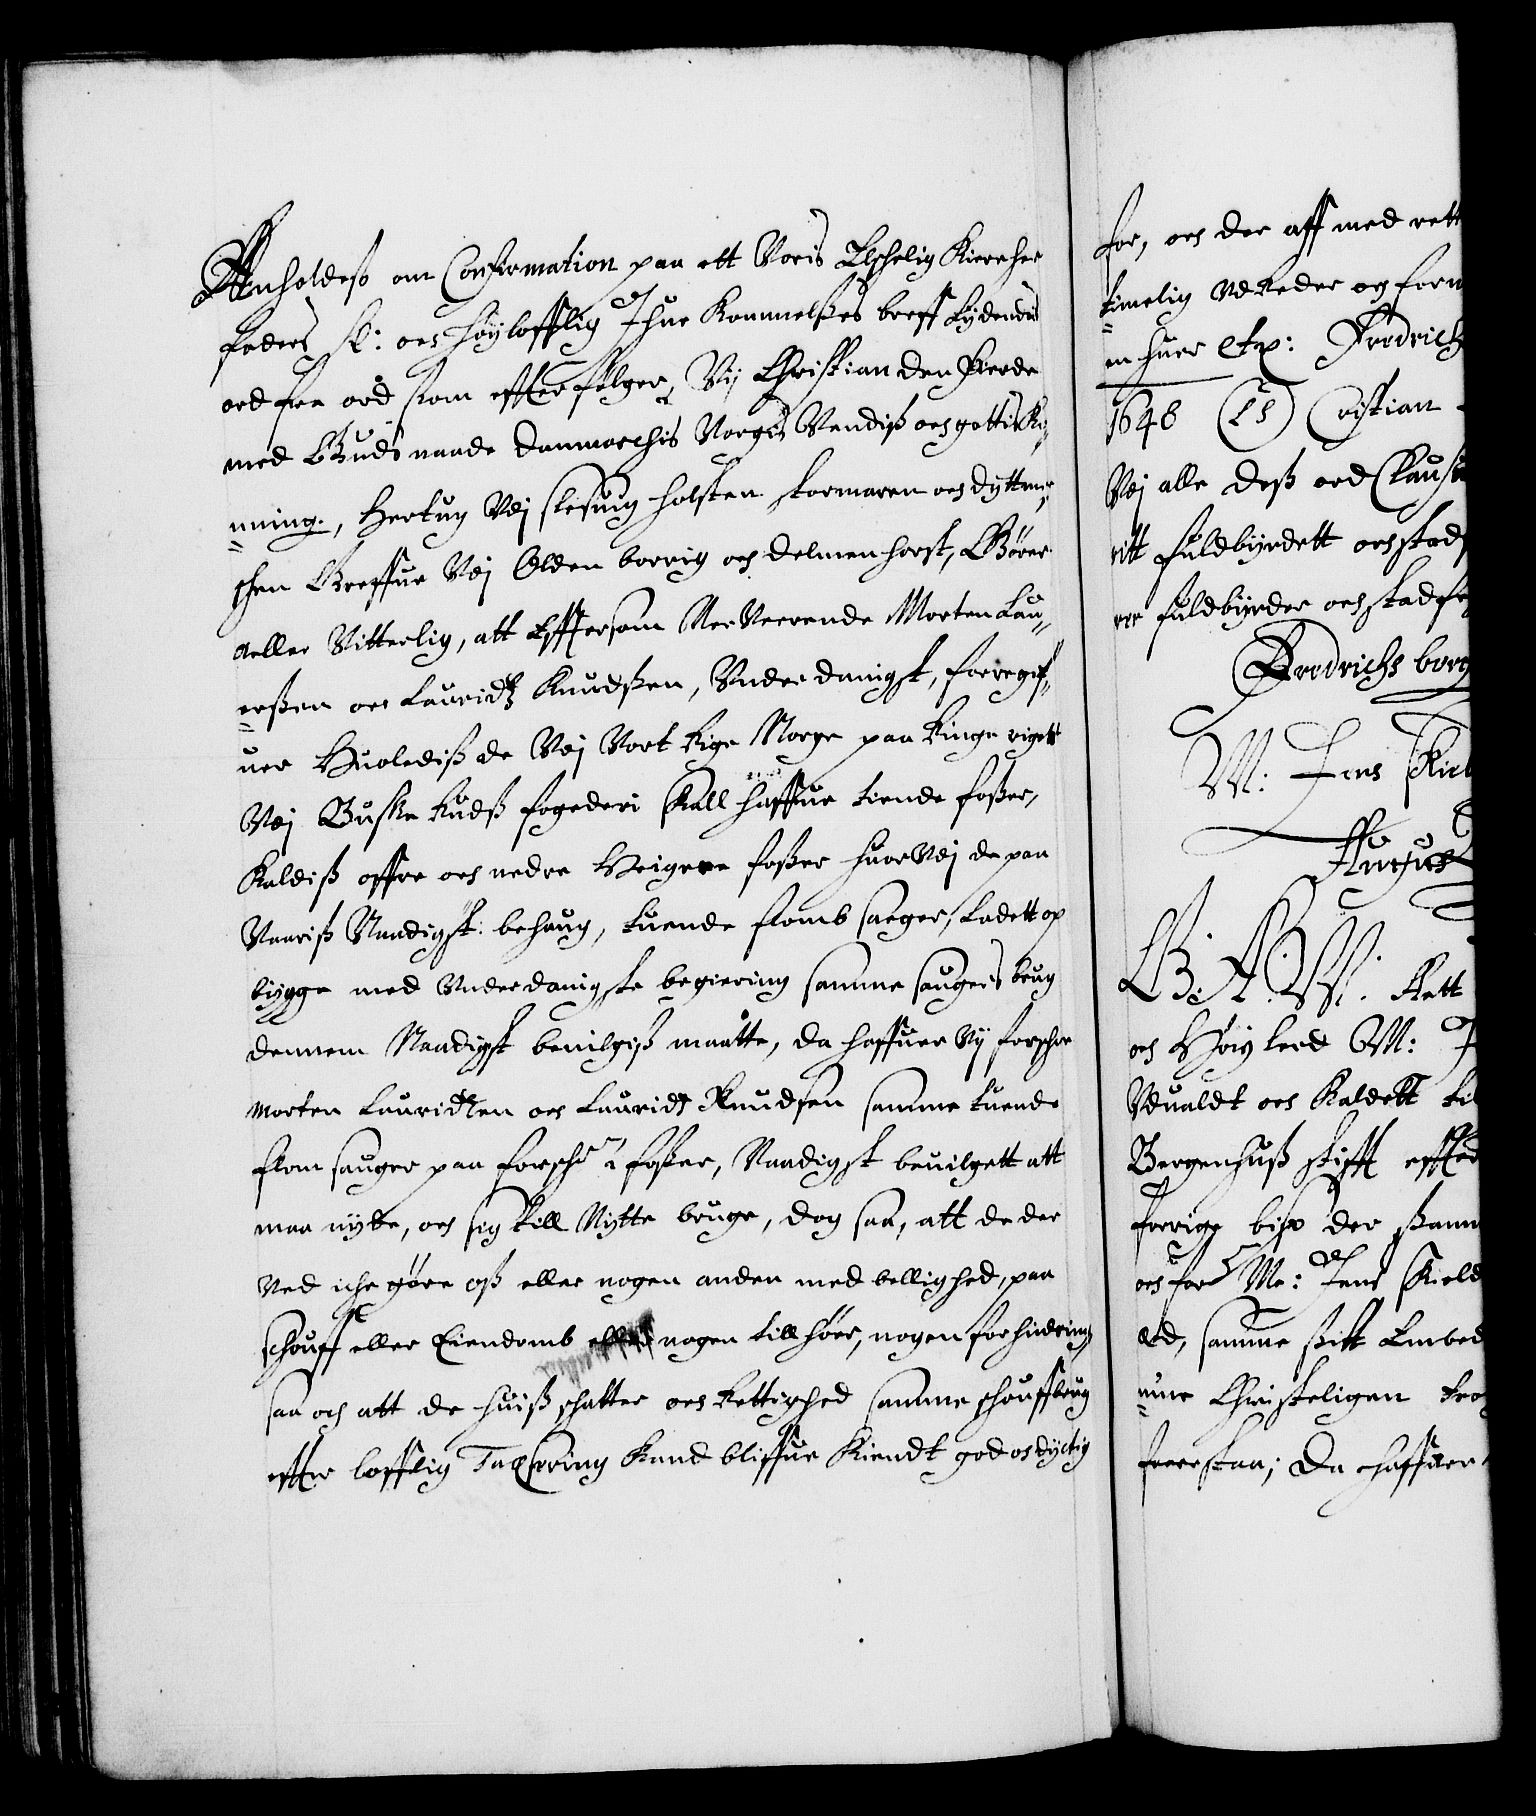 Anholdeß om Confirmation paa ett Voris Elschelig Kiere her
faders Sl: och Høyloffllig Ihue Kommelßes breff Lydendis
ord fra ord som effterfølger, Vij Christian den Fierde
med Guds naade Danmarchis Norgis Vendiß och gottis Ko¬
nning, Hertug Vdj slesuig holsten stormaren och dyttmer¬
schen Greffue Vdj Olden borrig och delmenhorst, Giører
aller Vitterlig, att Effttersom Nerverende Morten Lau¬
erßen och Lauridtz Knudßen, Vnderdanigst, forregif¬
uer Huolediß de Vdj Vort Rige Norge paa Ringerigett
Vdj Buskeruds fogederi Skall haffue tiende foßer,
Kaldiß offre och nedre Heigere foßer huor Vdj de paa
Vaariß Naadigst: behaug, tuende flomb saeger, Ladett op
bygge med Vnderdanigste begiering samme saugers brug
dennem Naadigst beuilgiß maatte, da haffuer Vij forschr
Morten Lauridtzen och Lauridtz Knudsen samme tuende
flom sauger paa forschr 2 foßer, Naadigst beuilgett att
maa nyde, och sig till Nytte bruge, dog saa, att de der
Ved iche giøre oß eller nogen anden med bellighed, paa
schouff eller Eiendomb nogen tillhører, nogen forhindring,
saa och att de huiß schatter och Rettighed samme schouffbrug
effter lofflig Taxering Kand bliffue Kiendt god och dyctig
for, och der aff med rett
timelig Vdreder og form
en huer etx: Fredrich
1648 (LS) Cristian
Vdj alle deß ord Clausu
ritt fuldbyrdett och stadf
rer fuldbyrder och stadfe
Fredrichs borg
M: Jens Skiel
G: A: W: Att
och Høylerd M: J
Vdualdt och Kaldett til
Bergenhuß stifft effter
forrige bisp der samm
och for: Mr: Jens Skield
ed, samme stift Embed
nne Christeligen tro
forestaa; Da haffuer